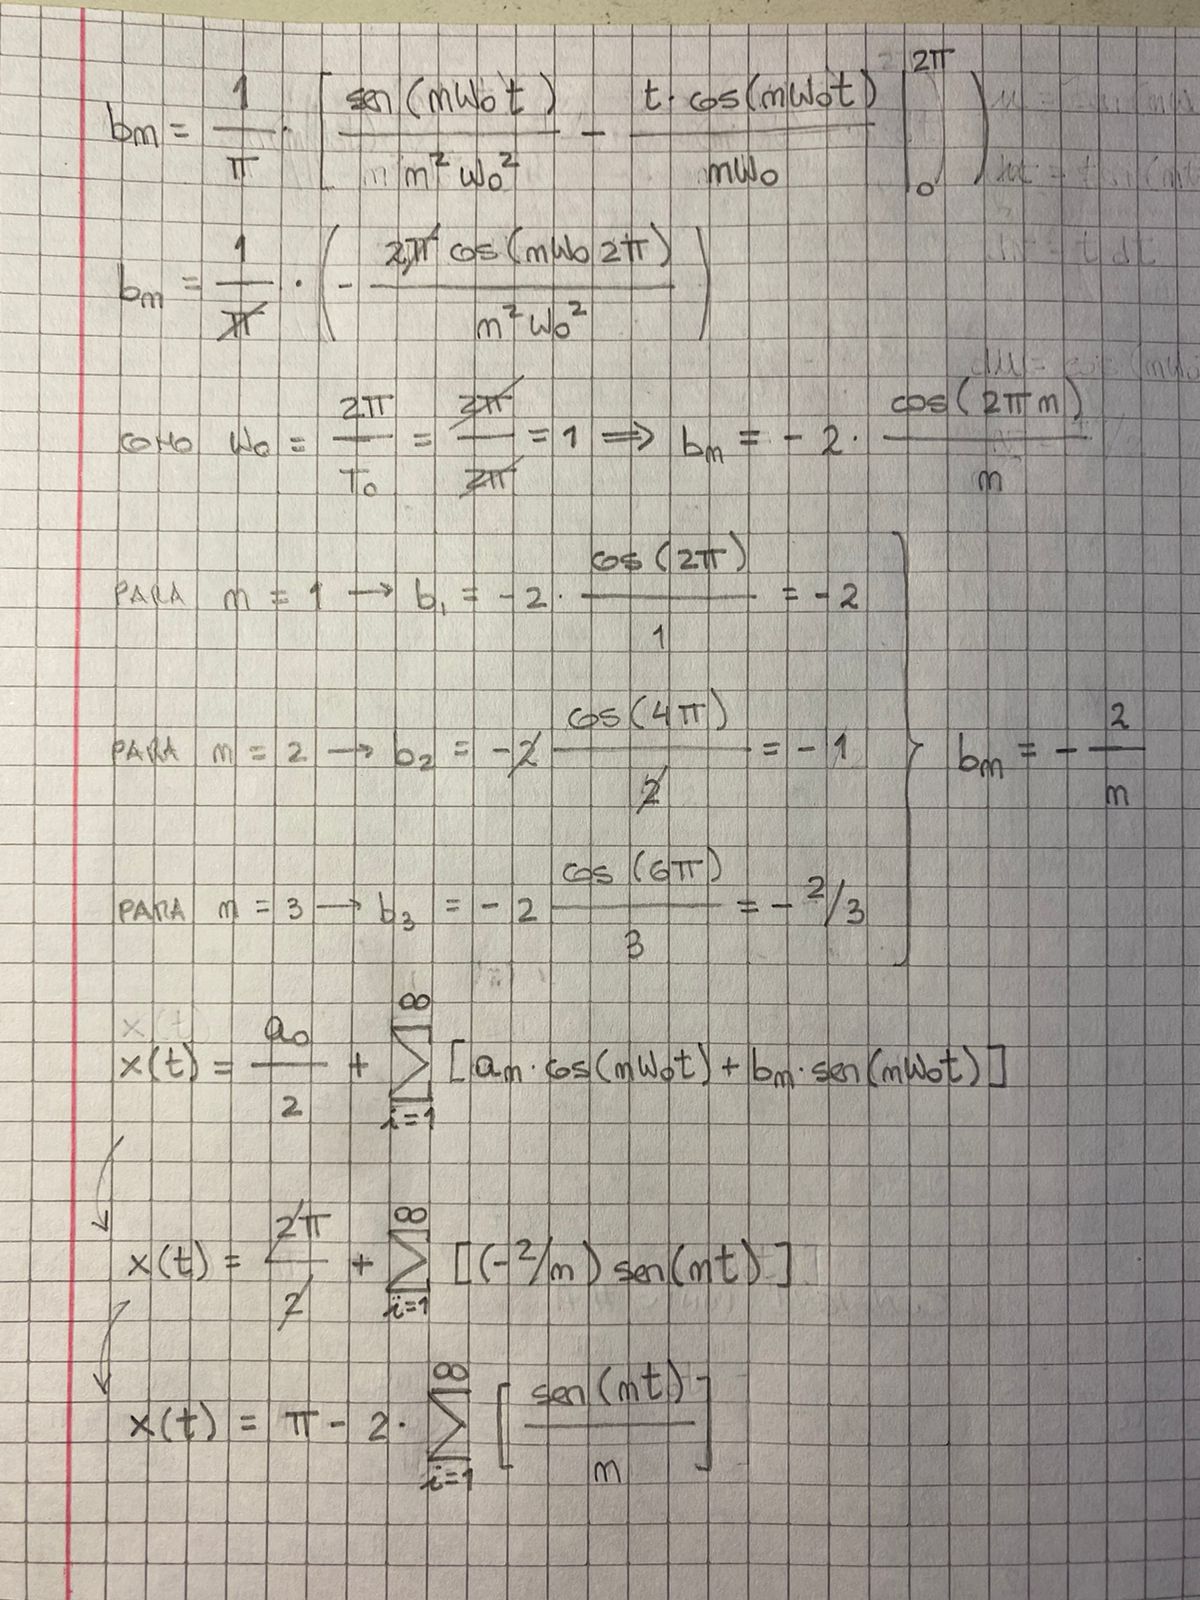 bm = 1/π · [ sen(mω₀t) / m²ω₀² − t·cos(mω₀t) / mω₀ |₀^2π )
bm = 1/π · ( − 2π cos(mω₀2π) / m²ω₀² )
COMO ω₀ = 2π/T₀ = 2π/2π = 1 ⟹ bm = −2 · cos(2πm) / m
PARA m = 1 → b₁ = −2 · cos(2π) / 1 = −2
PARA m = 2 → b₂ = −2 cos(4π) / 2 = −1
bm = − 2/m
PARA m = 3 → b₃ = −2 cos(6π) / 3 = −2/3
x(t) = a₀/2 + ∑_{i=1}^{∞} [am·cos(mω₀t) + bm·sen(mω₀t)]
x(t) = 2π/2 + ∑_{i=1}^{∞} [(−2/m) sen(mt)]
x(t) = π − 2 · ∑_{i=1}^{∞} [ sen(mt) / m ]